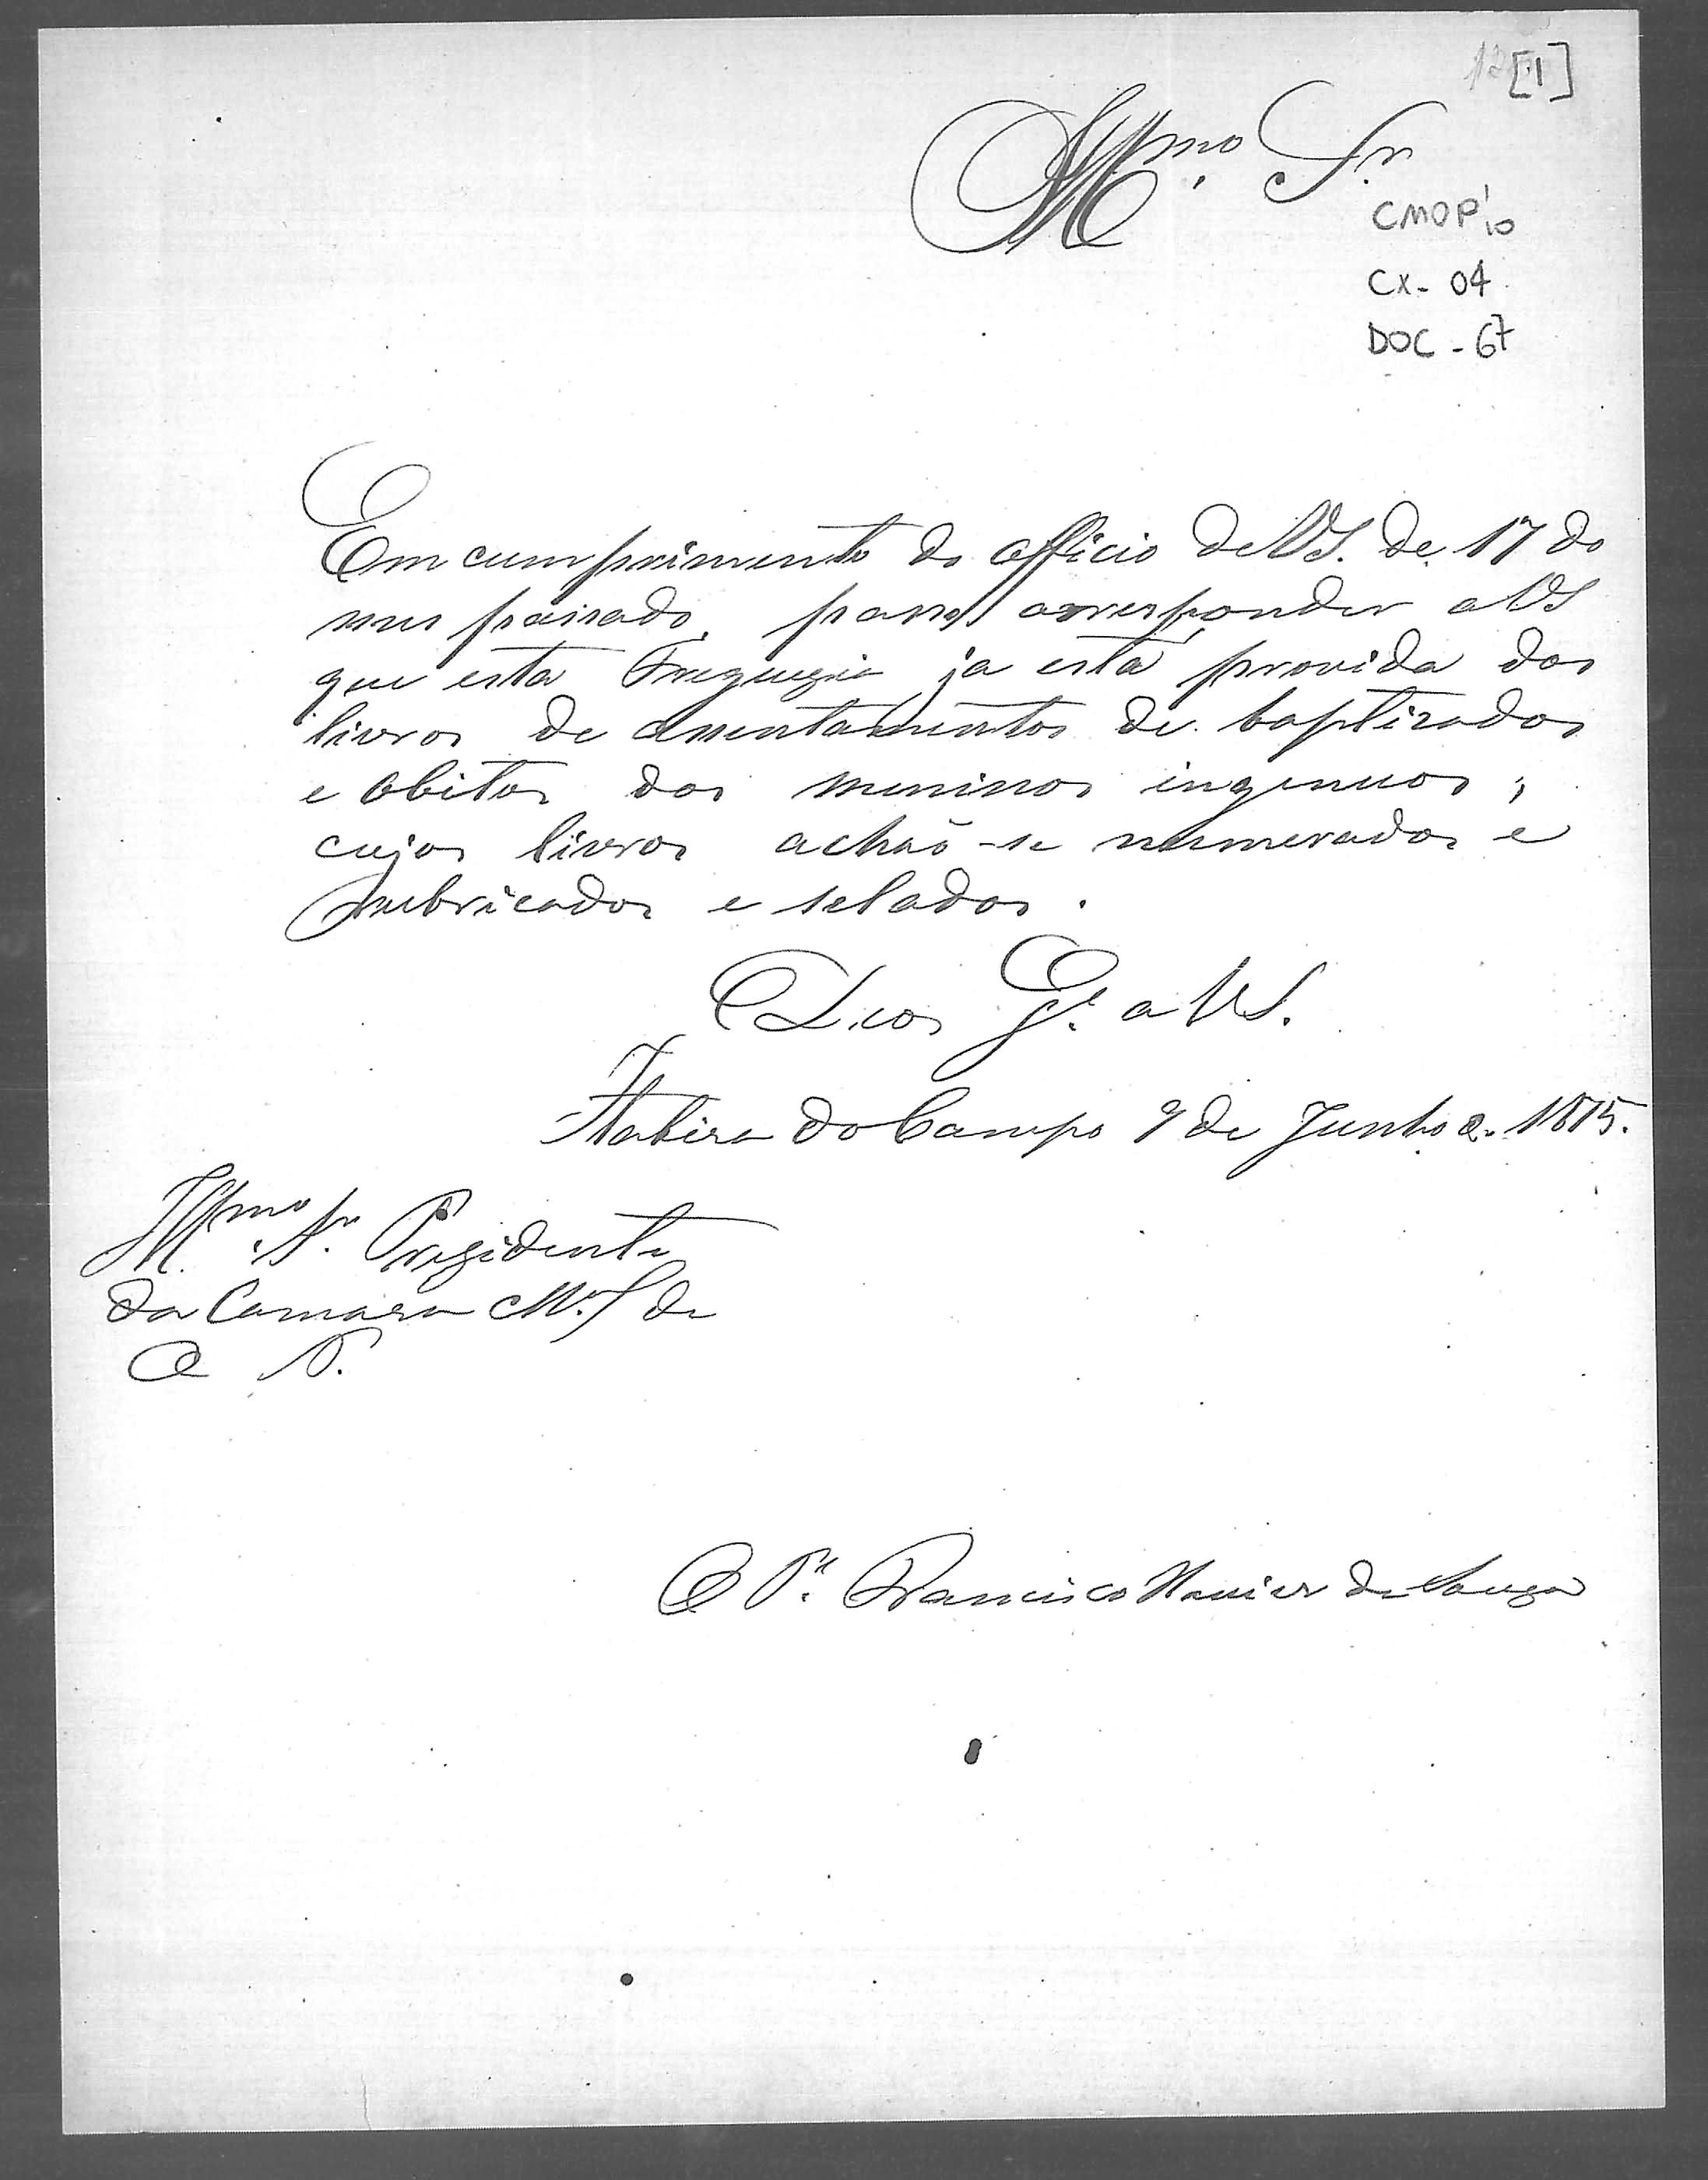 [1]
Illmo. Sr.
CMOP 10
CX - 04
DOC - 67
Em cumprimento do officio de VS. de 17 do
mes passado, passo a responder a VS
que esta Freguezia ja está provida dos
livros de assentamentos de baptizados
e obitos dos meninos ingenuos,
cujos livros achão-se numerados e
rubricados e selados.
Deos Ge. a VS.
Itabira do Campo 9 de Junho de 1875.
Illmo. Sr. Prezidente
da Camara Mal de
O P.
O Pe. Francisco Xavier de Souza